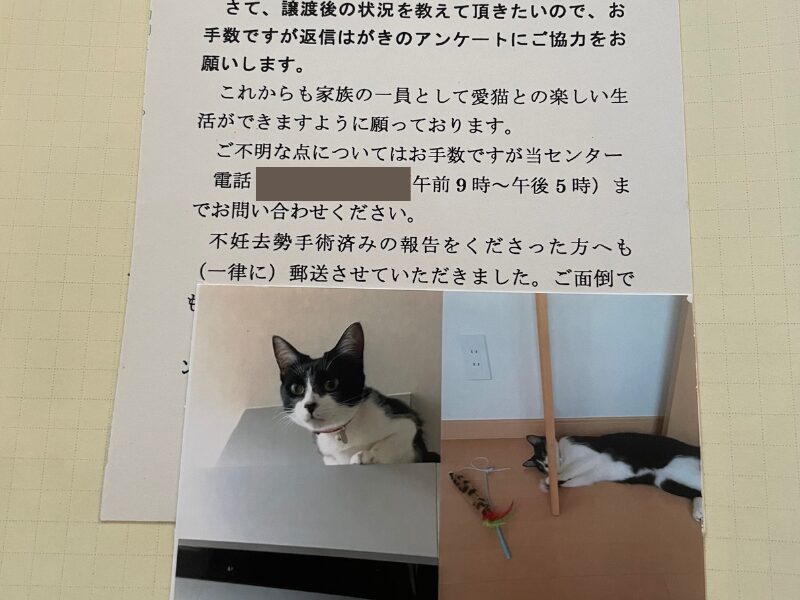 さて、譲渡後の状況を教えて頂きたいので、お
手数ですが返信はがきのアンケートにご協力をお
願いします。
これからも家族の一員として愛猫との楽しい生
活ができますように願っております。
ご不明な点についてはお手数ですが当センター
電話 午前9時〜午後5時）ま
でお問い合わせください。
不妊去勢手術済みの報告をくださった方へも
（一律に）郵送させていただきました。ご面倒で
も